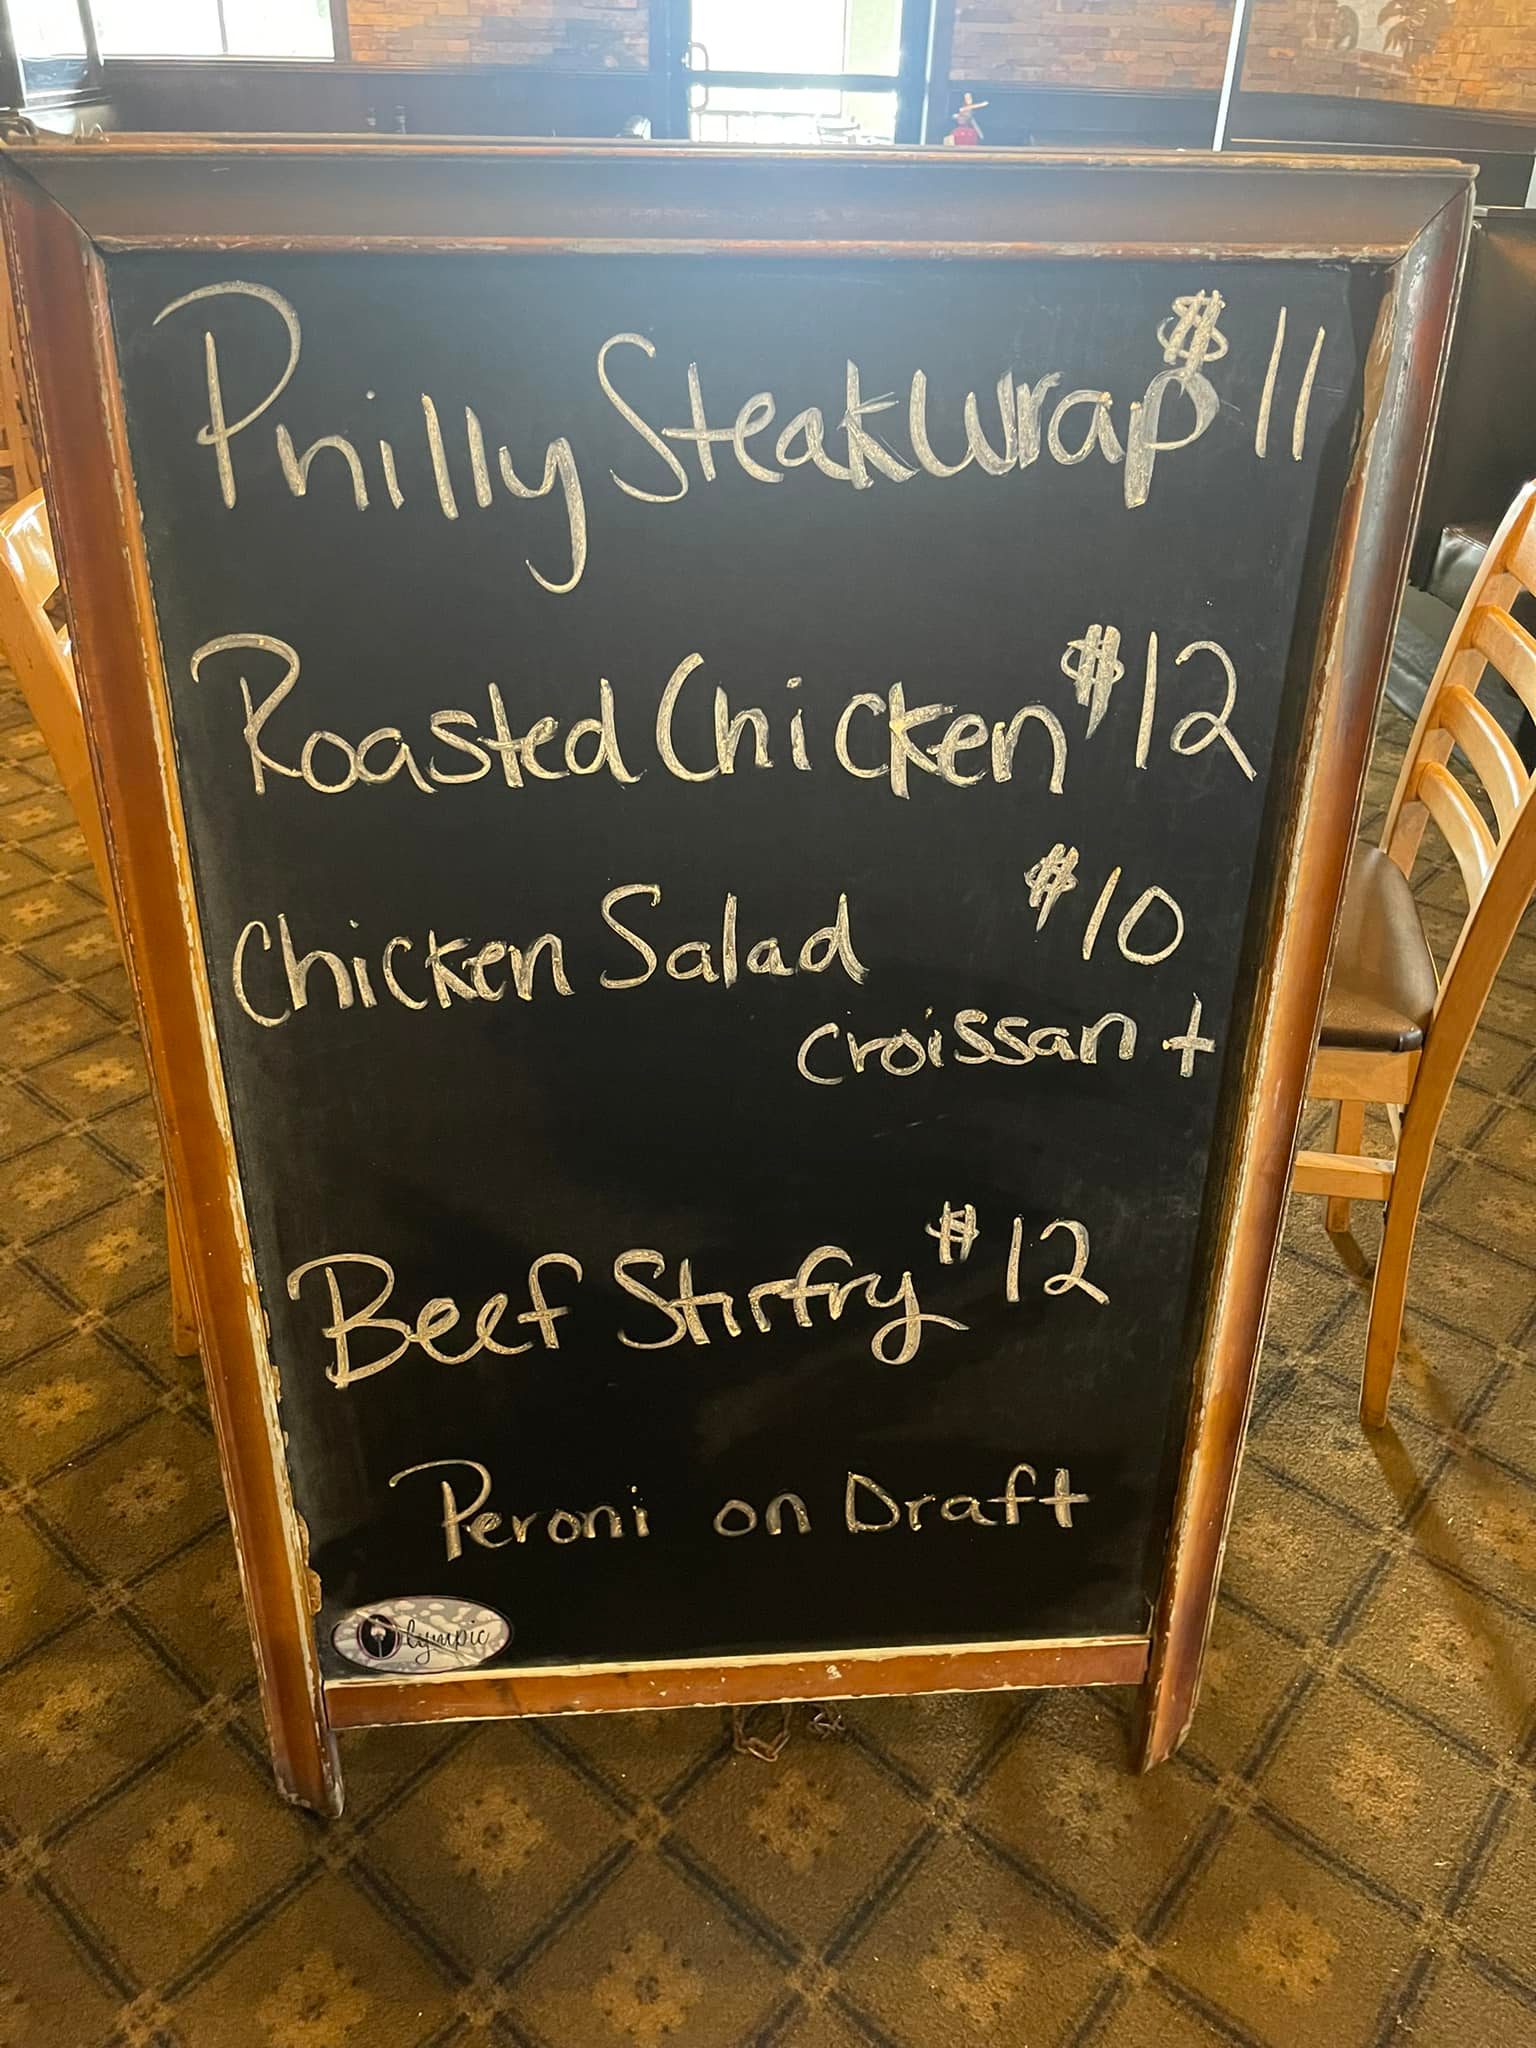 Philly Steak Wrap $11
Roasted Chicken $12
Chicken Salad $10
Croissant
Beef Stirfry $12
Peroni on Draft
Olympic